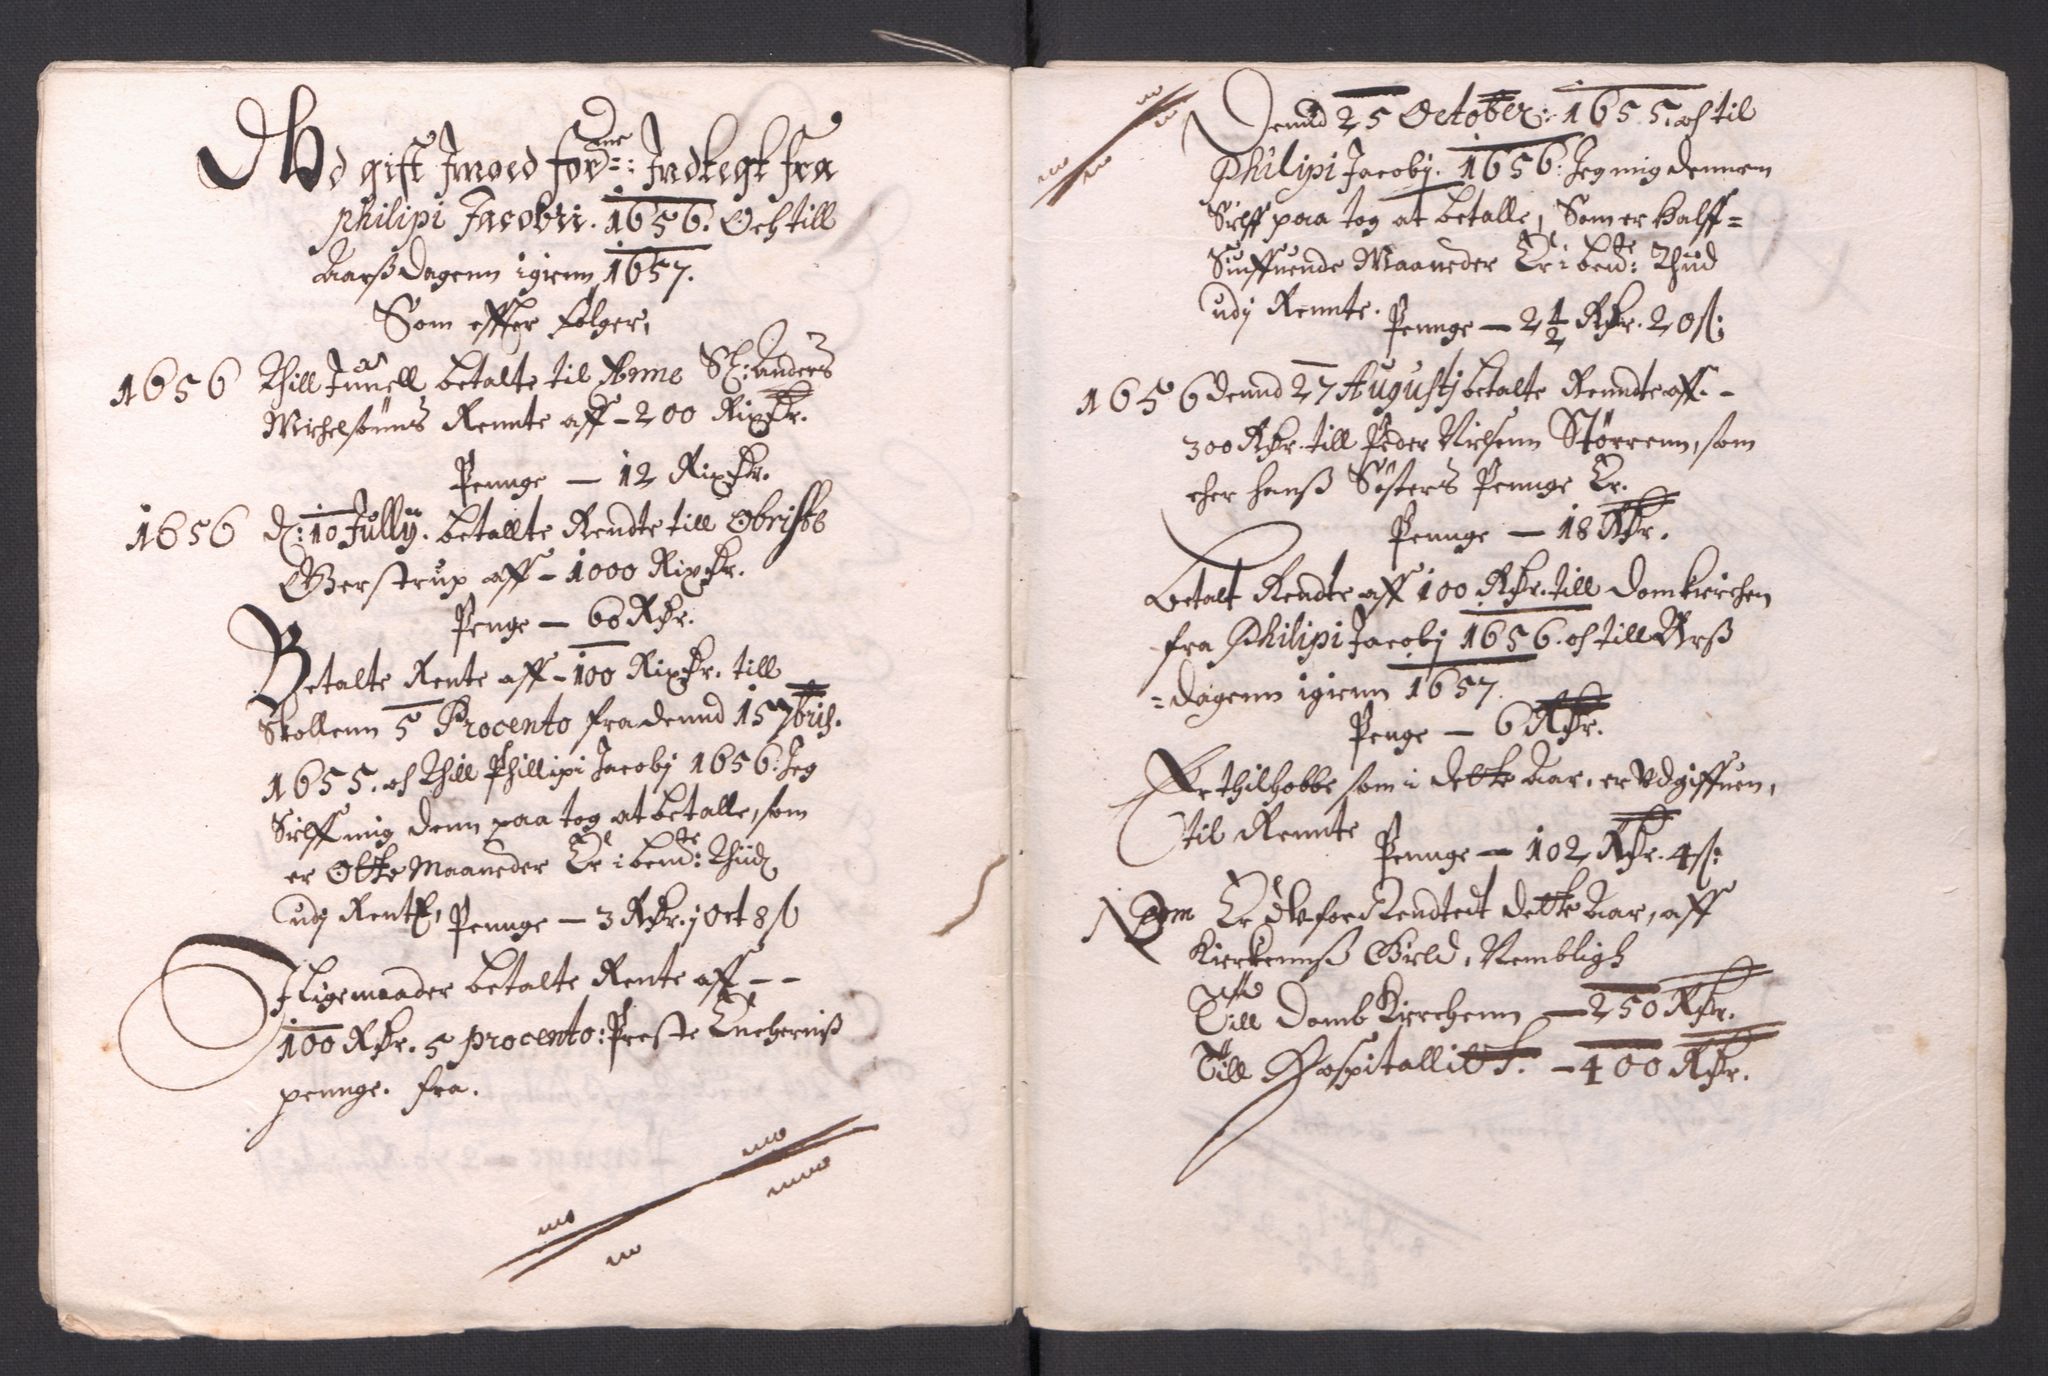 Vd gift Imoed forne: Indtegt fra
Philipi Jacobii. 1656. Och till
Aarß dagenn igienn 1657.
Som effter følger,
1656 Thill Juuell betalte til Anne Sl: Anders
Michelsønns Rennte aff – 200 Rixdr.
Pennge — 12 Rixdr.
1656 d: 10 Jullij. betallte Rendte till Obriste
Gierstrup aff – 1000 Rixdr.
Penge — 60 Rdr.
Betalte Rente aff – 100 Rixdr. till
Skollenn 5 Procento fra dennd 15 7bris.
1655. och Thill Phillipi Jacobj 1656. Jeg
Sielff mig denn paa tog at betalle, som
er Otte Maaneder Er i bente: Thiid
udj Rente, Pennge — 3 Rdr. j Ort 8 ß
I ligemaader betalte Rente aff – –
100 Rdr. 5 procento: Preste Enckernis
pennge. fra.
Dennd 25 October: 1655. och til
Philipi Jacobj. 1656. Jeg mig dennem
Sielff paa tog at betalle, Som er Halff=
Siuffuende Maaneder Er i bente: Thiid
udj Rennte.
Pennge — 2 1/2 Rdr. 20 ß:
1656 dennd 27 Augustj betalte Renndte aff –
300 Rdr. till Peder Nielsenn Størrenn, som
eher hanß Søsters Pennge Er.
Pennge — 18 Rdr.
Betalt Rendte aff 100 Rdr. till Domkirchen
fra Philipi Jacobj 1656. och till Arß
=dagenn igienn 1657.
Penge — 6 Rdr.
Er thilhobbe som i dette Aar, er Vdgiffuen,
til Rennte
Pennge — 102 Rdr. 4 ß:
Noch Er Aar, aff
Kierkennß Gield, Nembligh
Till Domb Kierchenn — 250 Rdr.
Till Hospitallit — 400 Rdr.